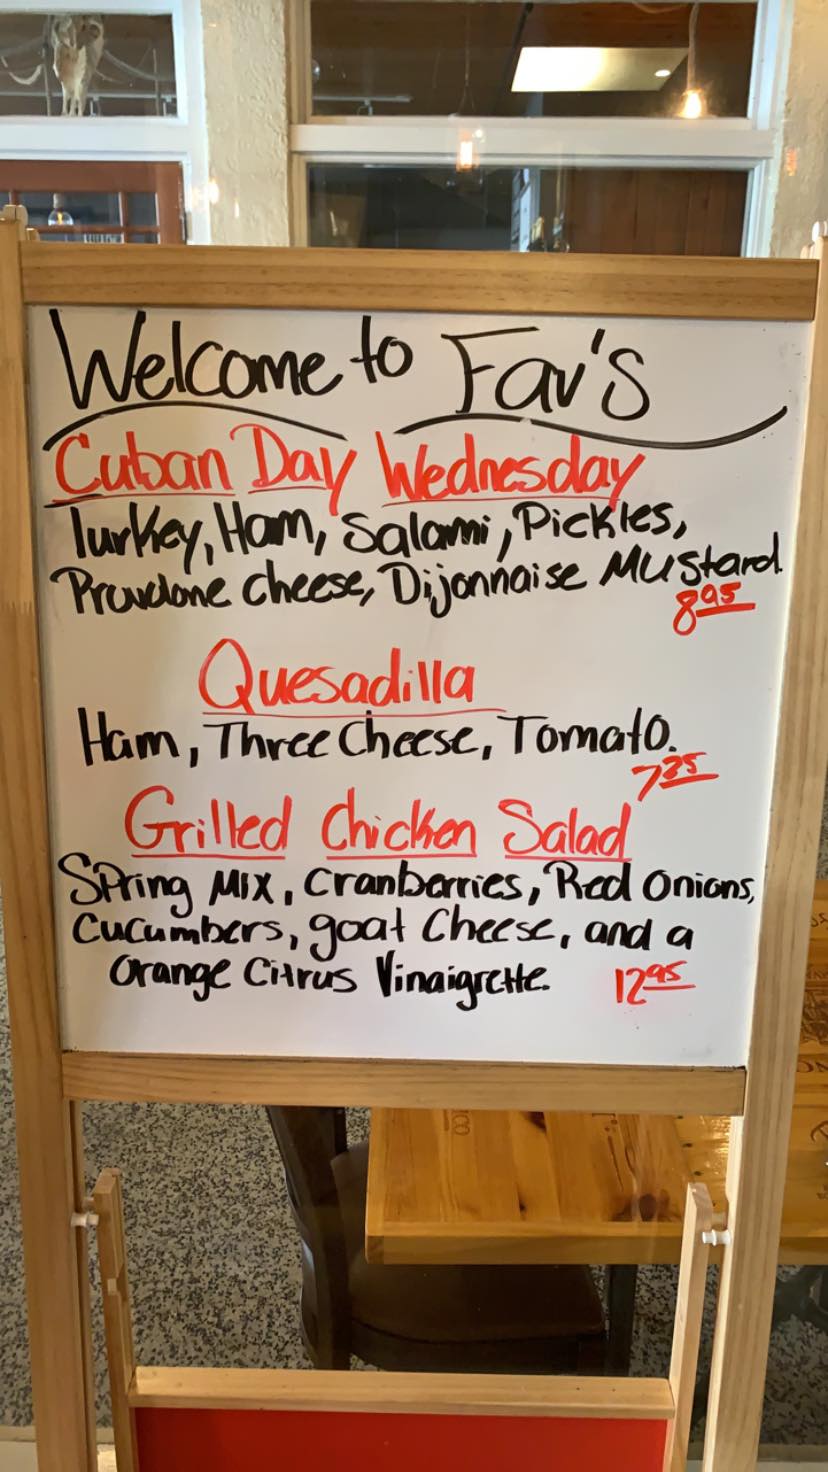 Welcome to Fav's
Cuban Day Wednesday
Turkey, Ham, Salami, Pickles,
Provolone Cheese, Dijonnaise Mustard.
8.95
Quesadilla
Ham, Three Cheese, Tomato.
7.25
Grilled Chicken Salad
Spring Mix, Cranberries, Red Onions,
Cucumbers, goat Cheese, and a
Orange Citrus Vinaigrette. 12.95